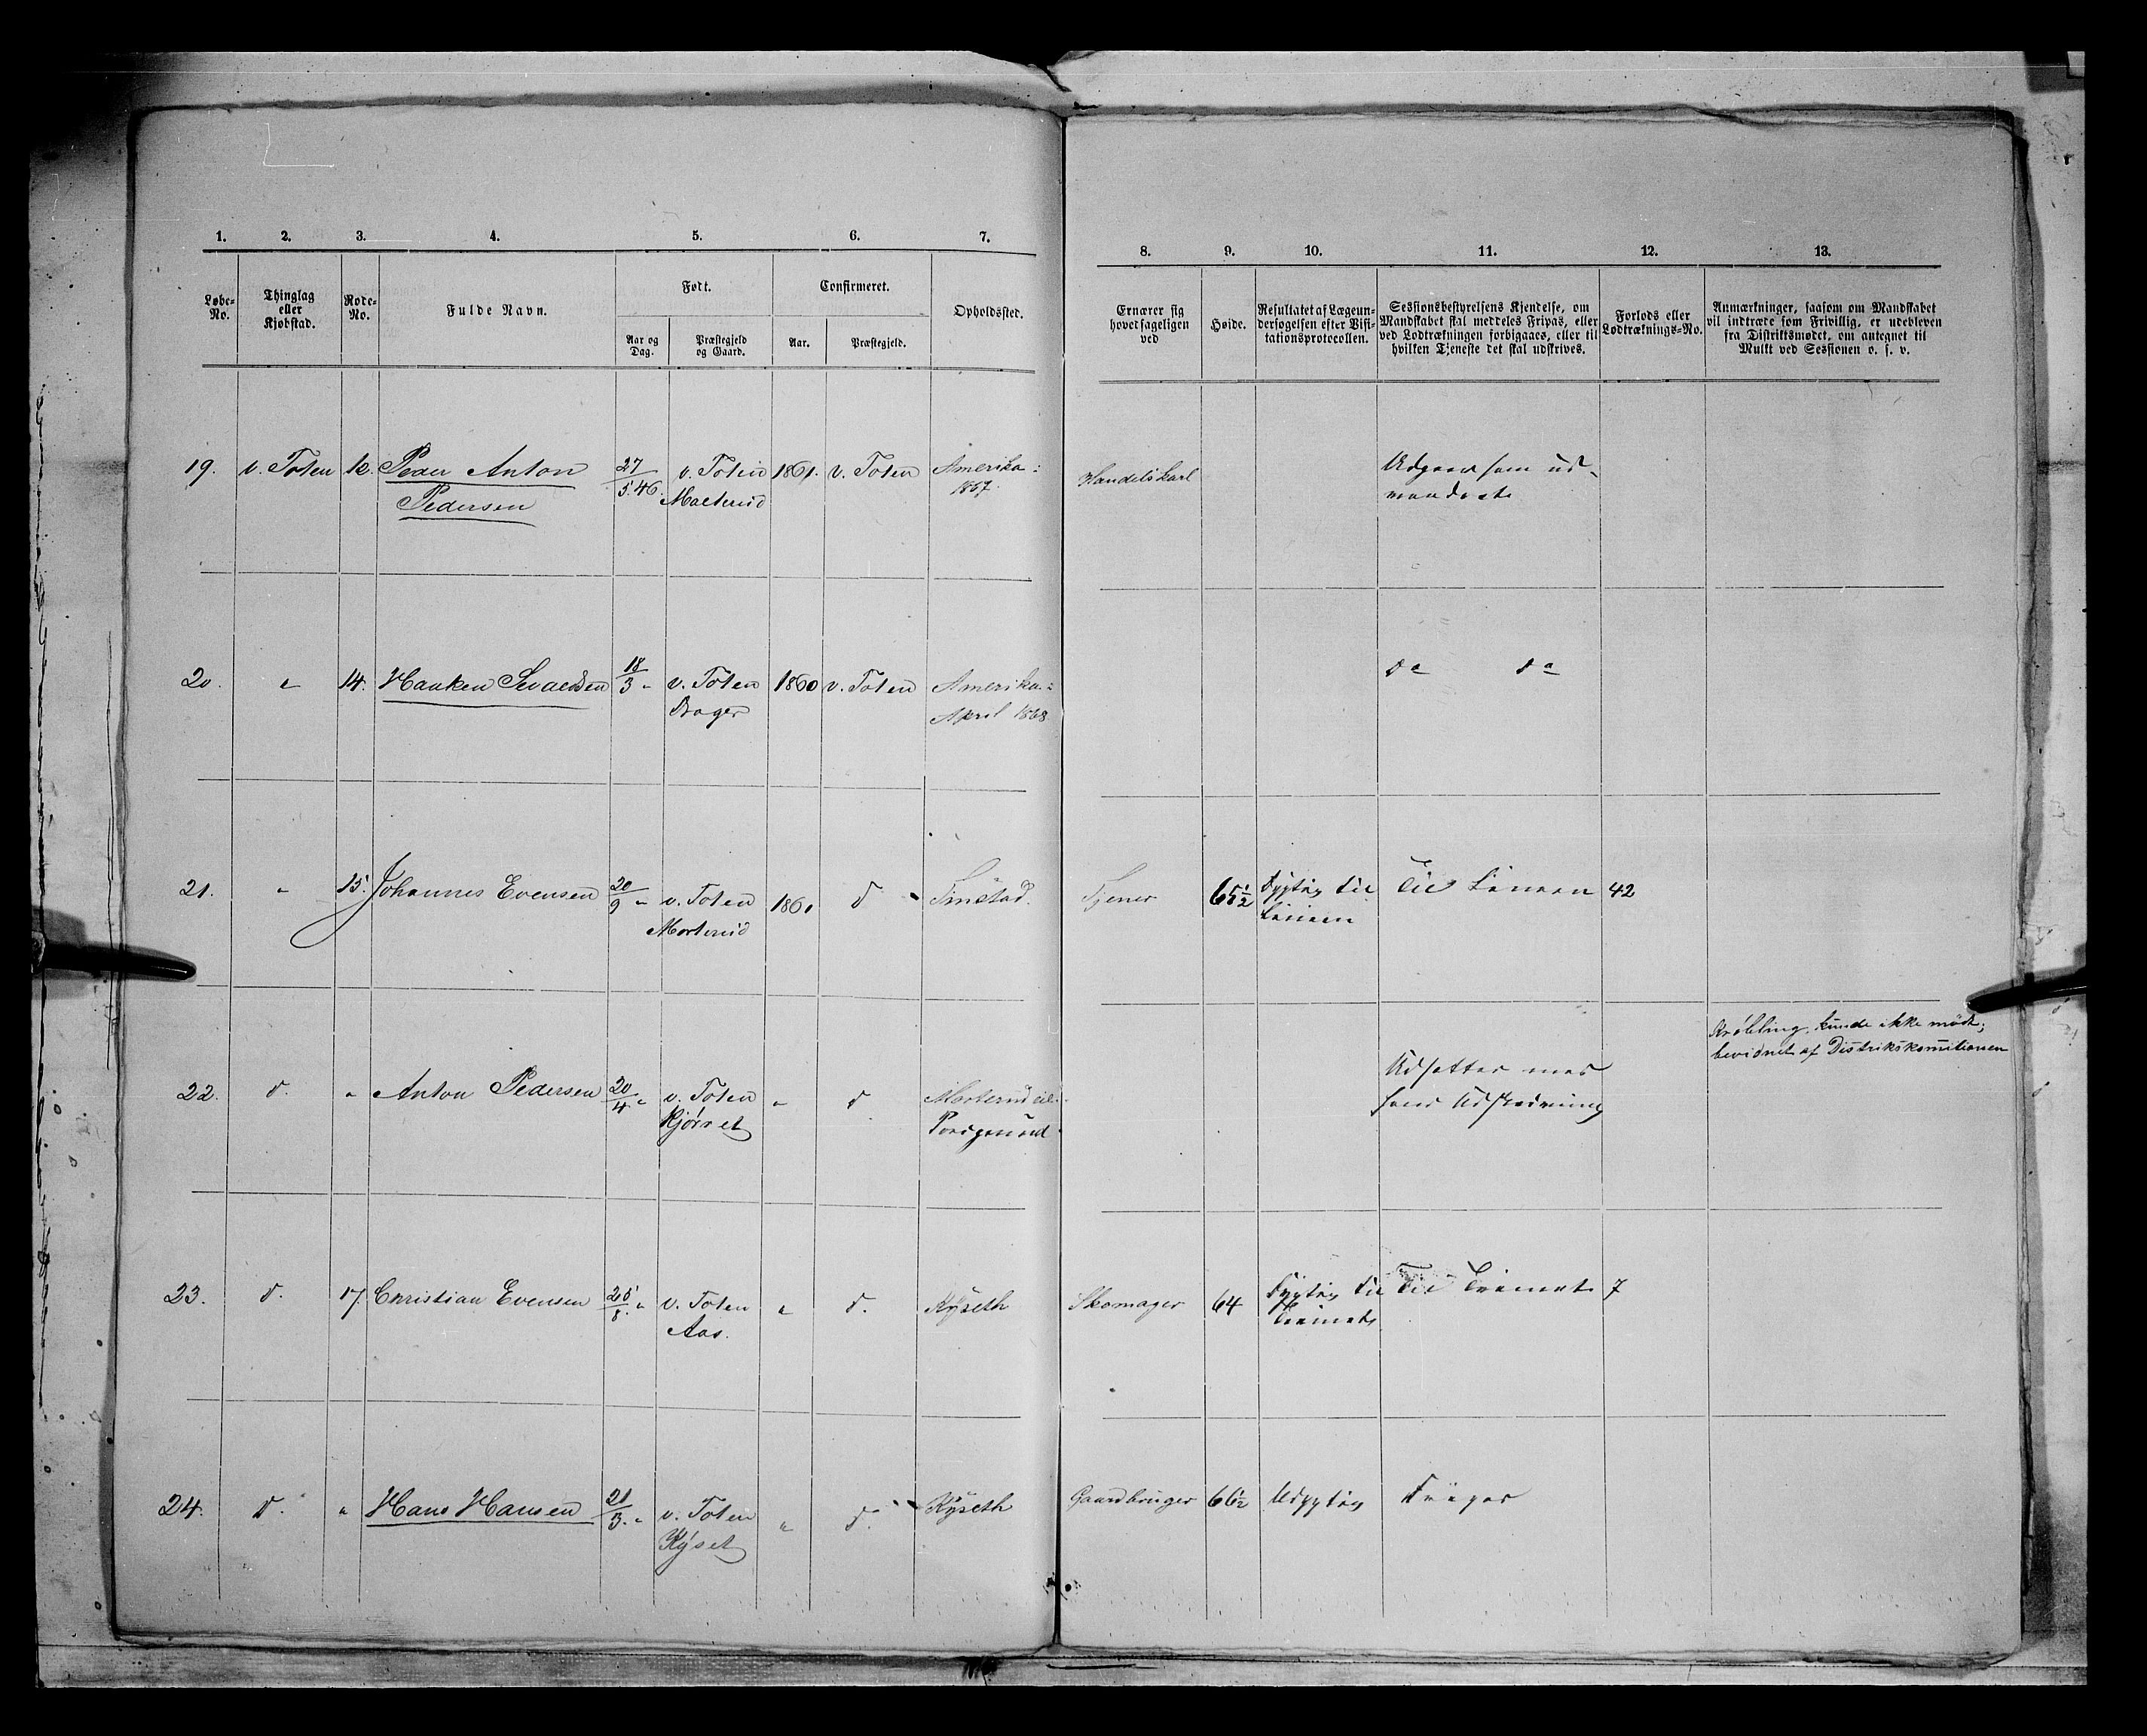 1. 2. 3. 4. 5. 6. 7.
Løbe-No. Thinglag eller Kjøbstad. Rode-No. Fulde Navn. Født. Confirmeret. Opholdssted.
Aar og Dag. Præstegjeld og Gaard. Aar. Præstegjeld.
8. 9. 10. 11. 12. 13.
Ernærer sig hovedsageligen ved
Høide.
Resultatet af Lægeun-
dersøgelsen efter Visi-
tationsprotocollen.
Sessionsbestyrelsens Kjendelse, om
Mandskabet skal meddeles Fripas, eller
ved Lodtrækningen forbigaaes, eller til
hvilken Tjeneste det skal udskrives.
Forlods eller
Lodtræknings-No.
Anmærkninger, saasom om Mandskabet
vil indtræde som Frivillig, er udebleven
fra Distriktsmødet, om antegnet til
Mulkt ved Sessionen o. s. v.
19. v. Toten 12. Peder Anton 27/5.46. v. Toten 1861. v. Toten Amerika: Handelskarl Udgaar som ud-
Pedersen Malterud 1867. vandret
20. " 14. Haaken 18/3 " v. Toten 1860 v. Toten Amerika: do do
Bager April 1868.
21. " 15. Johannes Evensen 20/9 " v. Toten 1861 d Tjener 65½ Dygtig til Til Linien 42
Morterud Linien
22. d. " Anton Pedersen 20/4 " v. Toten " d. Morterud eie: Udsættes med Krøbling, kunde ikke møde;
Kjørset hans Udskrivning bevidnet af Distrikskomitionen
23. d. 17. Christian Evensen 25/8. " v. Toten " d. Kÿseth Skomager 64 Dygtig til Til Trainet 7
Aas. Trainet
24. d. " Hans Hansen 21/3. " v. Toten " d. Kÿseth Gaardbruger 66½ Udygtig Fripas
Kÿset